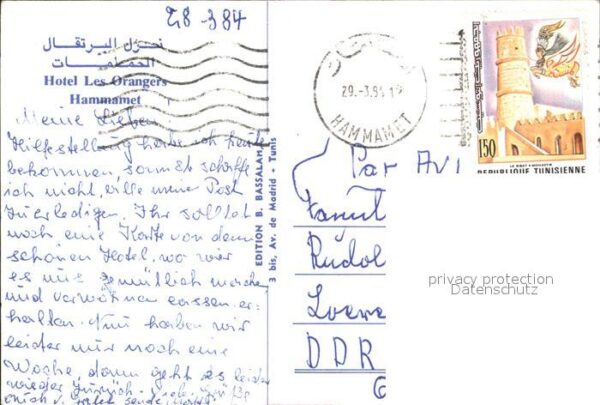 28-3.84
نزل البرتقال
الحمامات
Hotel Les Orangers
Hammamet
Meine Lieben
Hilfestellung habe ich heute
bekommen sonst schaffe
ich nicht, alle meine Post
zu erledigen. Ihr solltet
noch eine Karte von dem
schönen Hotel, wo wir
es uns gemütlich machen
und verwöhnen lassen, er-
halten. Nun haben wir
leider nur noch eine
Woche, dann geht es leider
wieder zurück. Viele Grüße
EDITION B. BASSALAH
3 bis, Av. de Madrid - Tunis
29.-3.84
HAMMAMET
150
REPUBLIQUE TUNISIENNE
Par Avi
Famil
Rudol
Loewe
DDR
G
privacy protection
Datenschutz